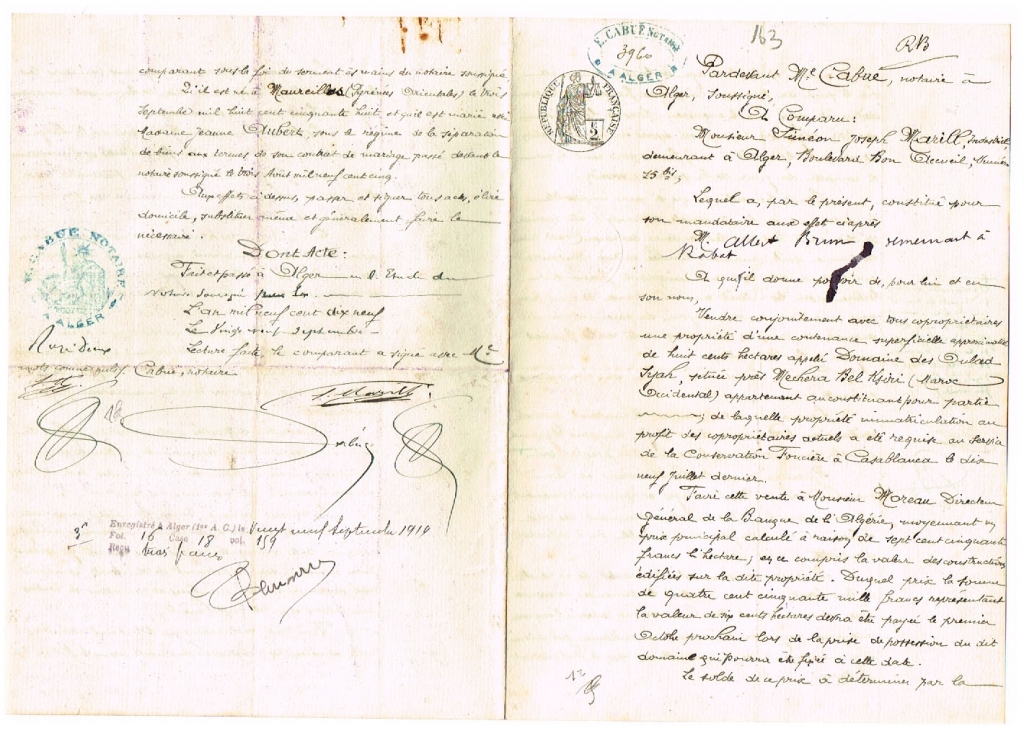 comparant sous la foi du serment ès mains du notaire soussigné
Qu'il est né à Maureillas (Pyrénées Orientales) le trois
Septembre mil huit cent cinquante huit et qu'il est marié avec
Madame Jeanne Aubert, sous le régime de la séparation
de biens aux termes de son contrat de mariage passé devant le
notaire soussigné le trois Août mil neuf cent cinq.
Aux effets ci dessus, passer et signer tous actes, élire
domicile, substituer en même et généralement faire le
nécessaire.
Dont Acte:
Fait et passé à Alger en l'Etude du
Notaire soussigné
L'an mil neuf cent dix neuf
Le Vingt neuf Septembre
Lecture faite le comparant a signé avec Me
Cabué, notaire
Rayé deux
mots comme nuls
E. CABUÉ NOTAIRE
A ALGER
Enregistré à Alger (1er A. C.) le Vingt neuf Septembre 1919
Fol. 16 Case 18 vol. 159
Reçu trois francs
E. CABUÉ NOTAIRE
3960
A ALGER
163
RB
RÉPUBLIQUE FRANÇAISE
2
Pardevant Me Cabué, notaire à
Alger, soussigné,
A Comparu:
Monsieur Siméon Joseph Marill, Industriel
demeurant à Alger, Boulevard Bon Accueil, Numéro
15 bis,
Lequel a, par le présent, constitué pour
son mandataire aux effets ci après
M. Albert Brun demeurant à
Rabat
A qui il donne pouvoir de, pour lui et en
son nom,
Vendre conjointement avec tous copropriétaires
une propriété d'une contenance superficielle approximative
de huit cents hectares appelé Domaine des Oulad
Syah, située près Mechera Bel Ksiri (Maroc
Occidental) appartenant au constituant pour partie
; de laquelle propriété immatriculation au
profit des copropriétaires actuels a été requise au Service
de la Conservation Foncière à Casablanca le dix
neuf Juillet dernier.
Faire cette vente à Monsieur Moreau Directeur
Général de la Banque de l'Algérie, moyennant un
prix principal calculé à raison de sept cent cinquante
francs l'hectare; en ce compris la valeur des constructions
édifiées sur la dite propriété. Duquel prix la somme
de quatre cent cinquante mille francs représentant
la valeur de six cents hectares devra être payée le premier
Octobre prochain lors de la prise de possession du dit
domaine qui pourra être fixée à cette date.
Le solde de ce prix à déterminer par la